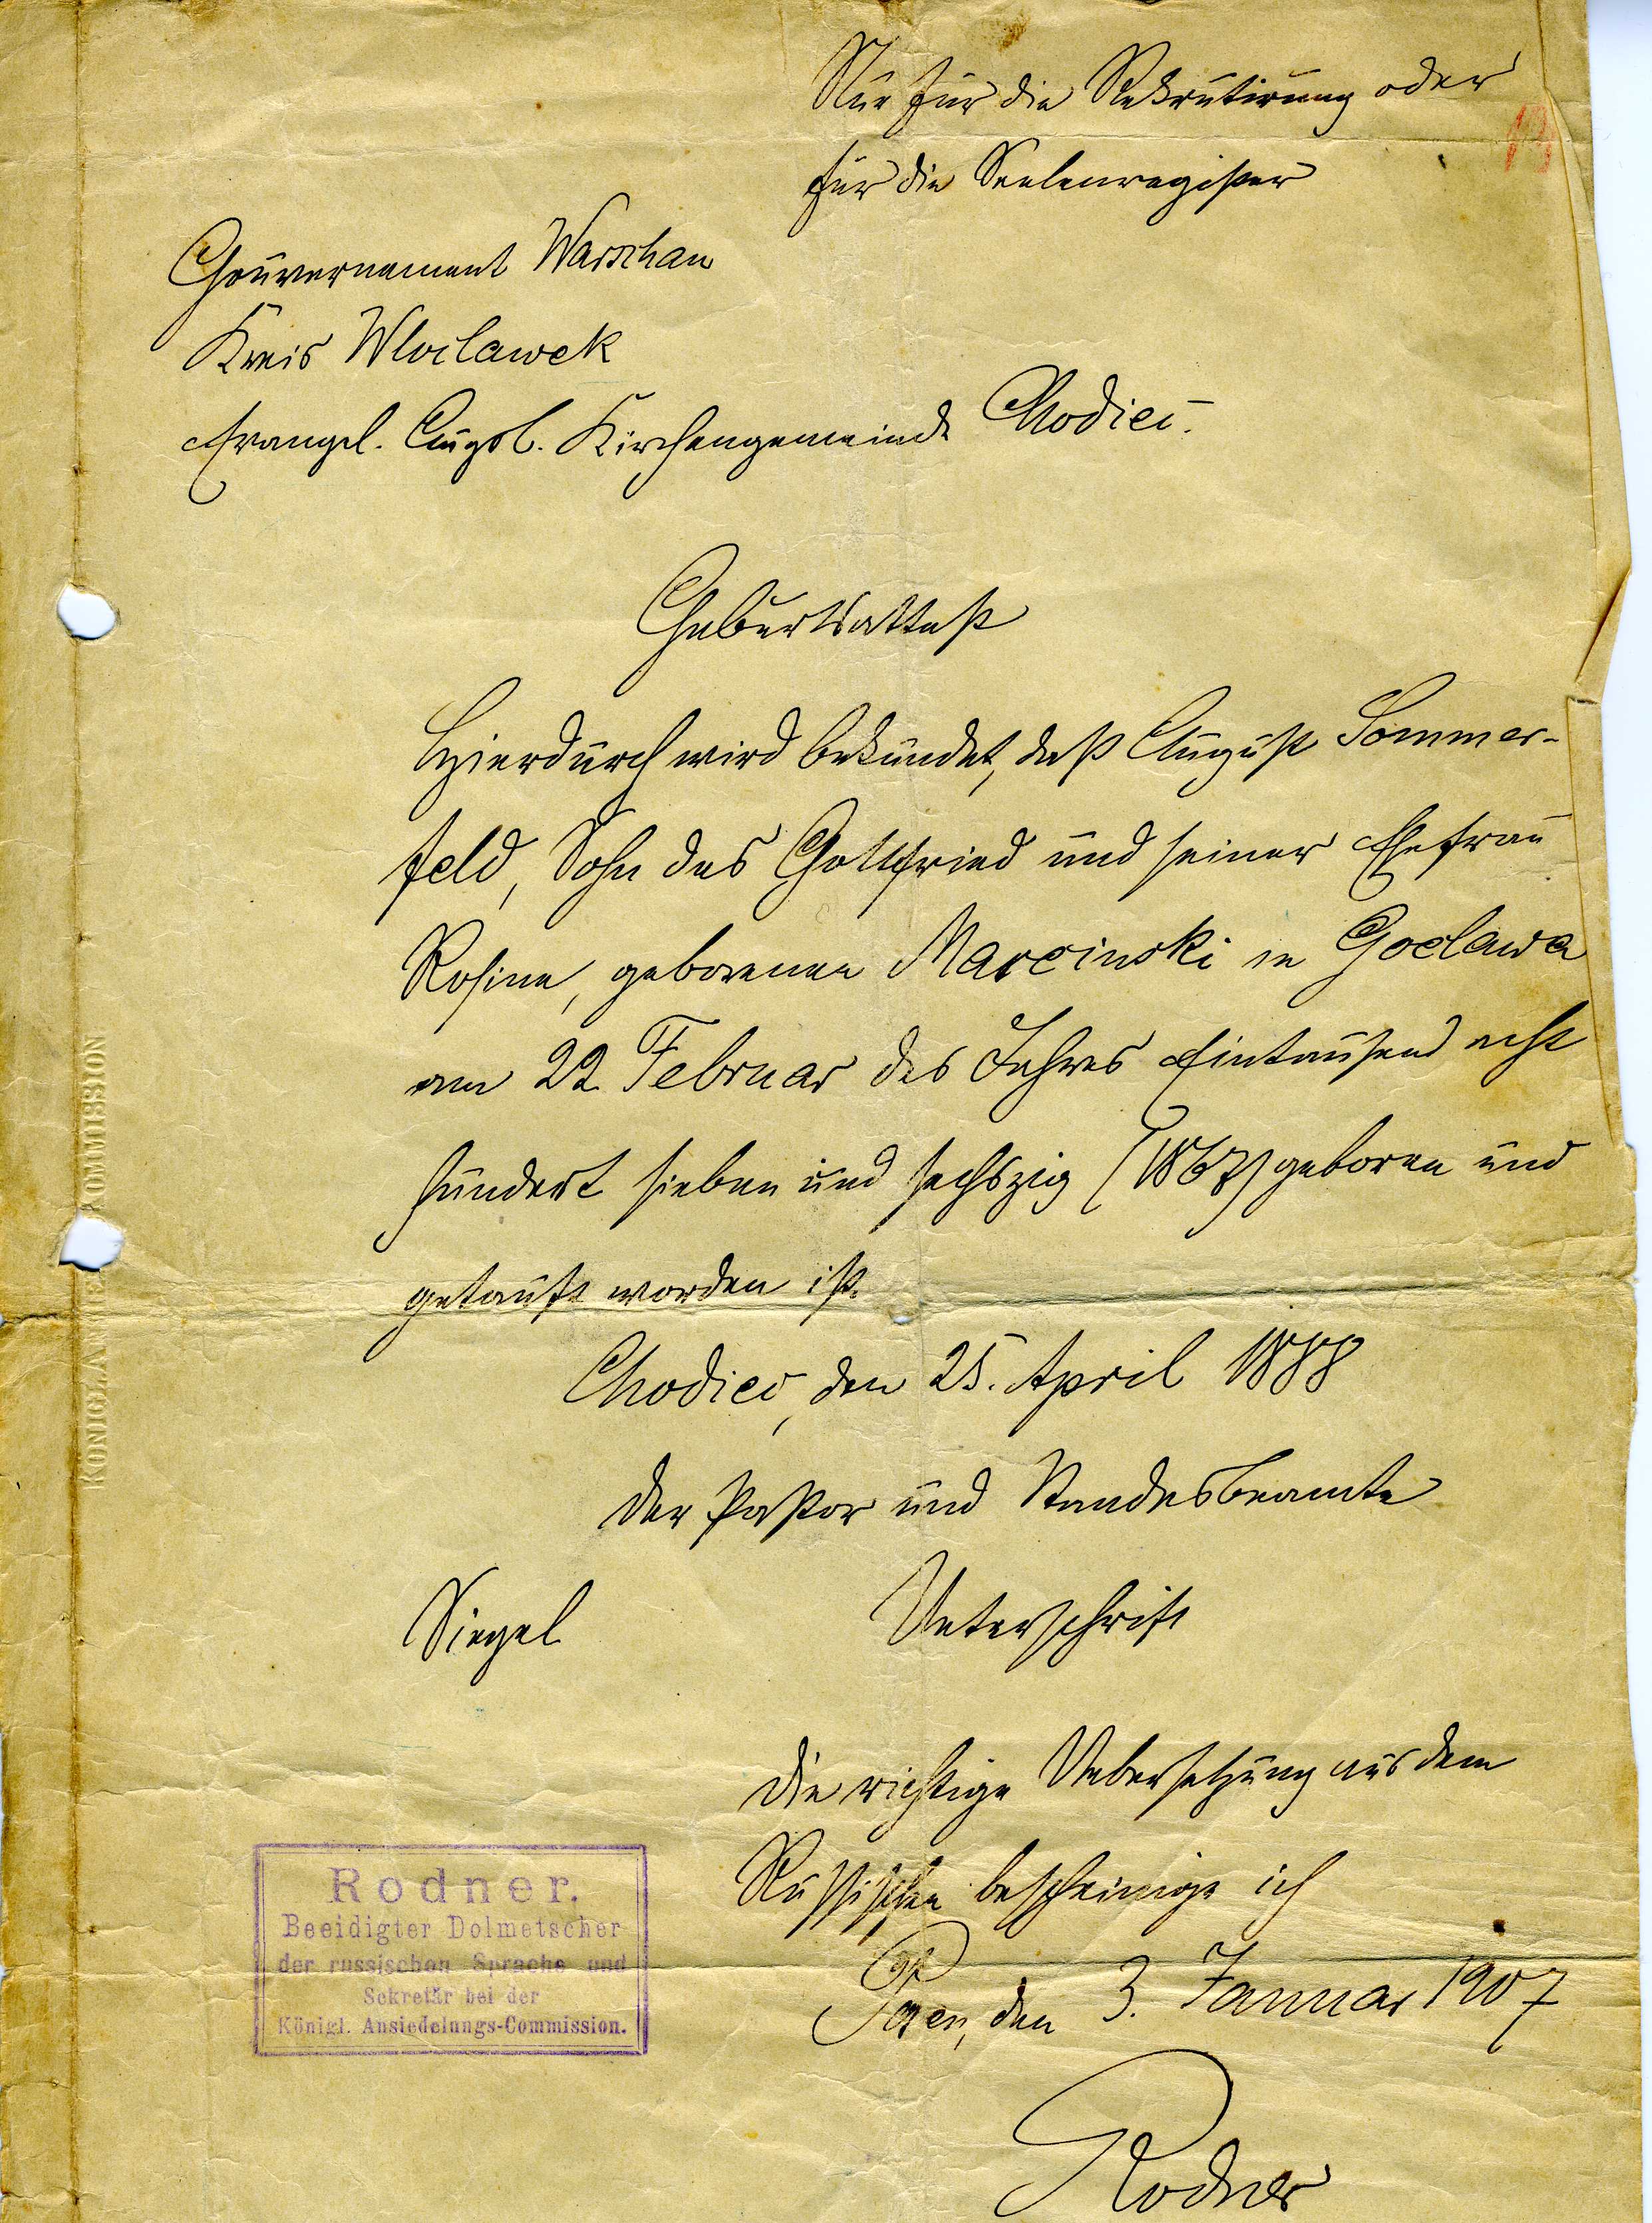 Nur für die Rekrutirung oder
für die Seelenregister
13
Gouvernement Warschau
Kreis Wloclawek
Evangel. Augsb. Kirchengemeinde Chodicz.
Geburtsattest
Hierdurch wird bekundet, daß August Sommer-
feld, Sohn des Gottfried und seiner Ehefrau
Rosine, geborenen Marcinski in Goclawa
am 22 Februar des Jahres Eintausend acht
hundert sieben und sechszig (1867) geboren und
getauft worden ist.
Chodicz, den 25. April 1888
Der Pastor und Standesbeamte
Siegel Unterschrift
Die richtige Uebersetzung aus dem
Russischen bescheinige ich
Posen, den 3. Januar 1907
Rodner
Rodner.
Beeidigter Dolmetscher
der russischen Sprache und
Sekretär bei der
Königl. Ansiedelungs-Commission.